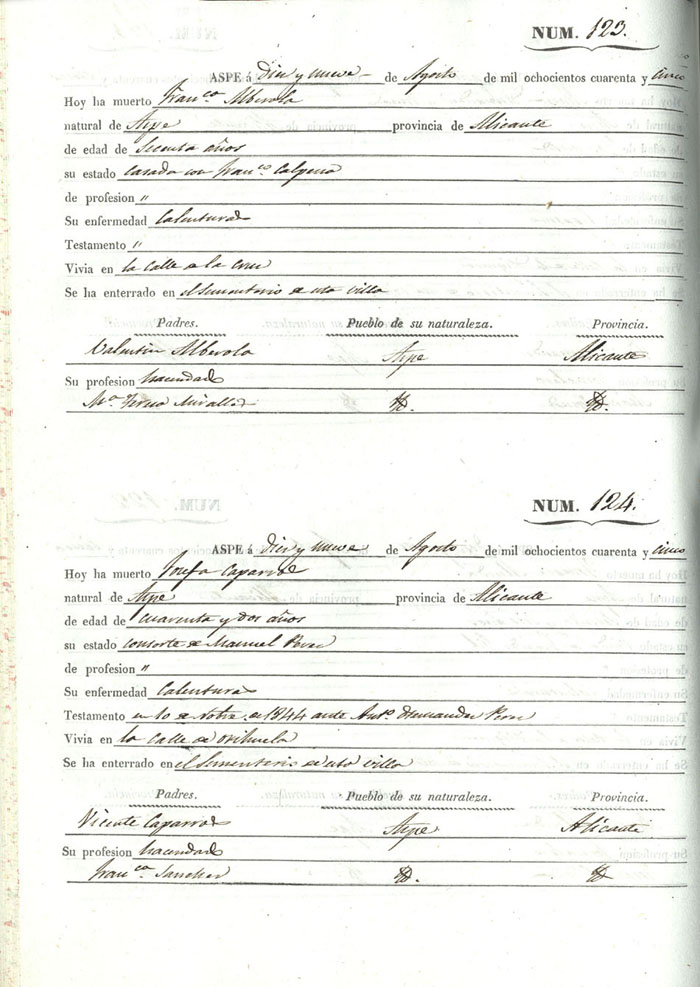 NUM. 123.
ASPE á Diez y nueve de Agosto de mil ochocientos cuarenta y cinco
Hoy ha muerto Franco Alberola
natural de Aspe provincia de Alicante
de edad de Secenta años
su estado casado con Franca Calpena
de profesion "
Su enfermedad Calenturas
Testamento "
Vivia en la Calle de la Cruz
Se ha enterrado en el Sementerio de esta villa
Padres. Pueblo de su naturaleza. Provincia.
Valentin Alberola Aspe Alicante
Su profesion hacendado
Ma Miralles Yd. Yd.
NUM. 124.
ASPE á Diez y nueve de Agosto de mil ochocientos cuarenta y cinco
Hoy ha muerto Josefa Caparros
natural de Aspe provincia de Alicante
de edad de cuarenta y dos años
su estado consorte de Manuel Perez
de profesion "
Su enfermedad Calenturas
Testamento en 10 de de 1844 ante Anto. Hernandez Perez
Vivia en la Calle de Orihuela
Se ha enterrado en el Sementerio de esta villa
Padres. Pueblo de su naturaleza. Provincia.
Vicente Caparros Aspe Alicante
Su profesion hacendado
Franca Sanchez Yd. Yd.